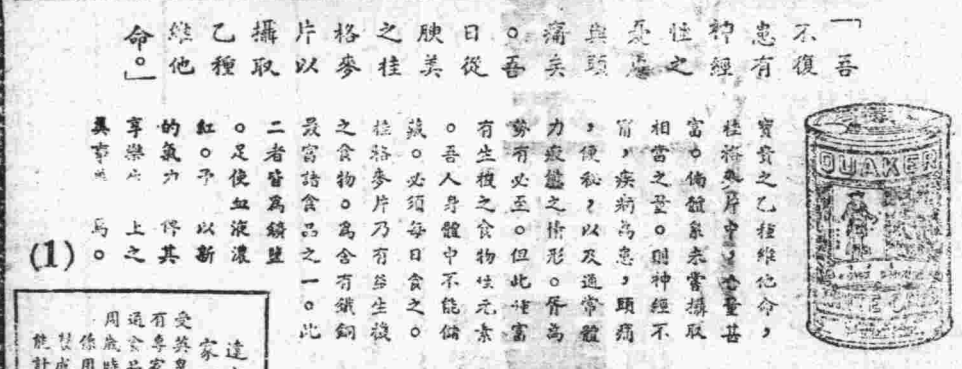 「吾
不復
患有
神經
性之
憂慮
與頭
痛矣
。吾
日從
腴美
之桂
格麥
片以
攝取
乙種
維他
命。」
QUAKER
寶貴之乙種維他命，
桂格麥片中，含量甚
富。倘體系未嘗攝取
相當之量。則神經不
甯，疾病為患，頭痛
，便秘，以及通常體
力疲憊之情形。胥為
勢有必至。但此種富
有生機之食物性元素
。吾人身體中不能儲
藏。必須每日食之。
桂格麥片乃有益生發
之食物。為含有鐵銅
最富諸食品之一。此
二者皆為鑛鹽
。足使血液濃
紅。予以新
的氣力俾其
享樂上之
美事焉。
(1)
達
家
受英
有專家
通食
周歲時
係用
製成
能計